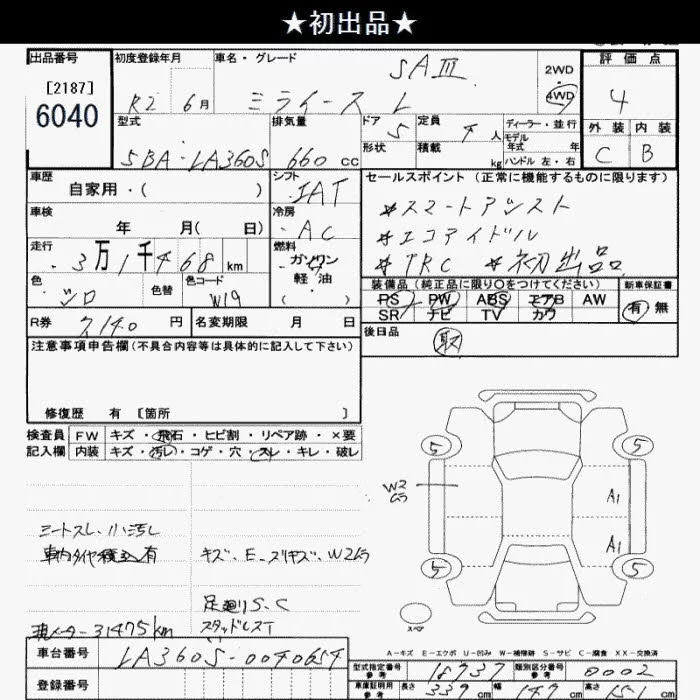 ★初出品★
出品番号
[2187]
6040
初度登録年月
R2 6月
車名・グレード
SAIII
ミライース L
2WD
4WD
評価点
4
外装 内装
C B
型式
5BA-LA360S
排気量
660 cc
ドア 5
形状
定員 4 人
積載 kg
ディーラー・並行
モデル年式 年
ハンドル 左・右
車歴
自家用・( )
シフト
IAT
車検
年 月( 日)
冷房
AC
走行
3万1千468 km
燃料
ガソリン
軽油
( )
色
シロ
色替
色コード
W19
R券 7,140 円
名変期限 月 日
セールスポイント (正常に機能するものに限ります)
*スマートアシスト
*エコアイドル
*TRC *初出品
装備品 (純正品に限り○をつけてください)
PS PW ABS エアB AW
SR ナビ TV カワ
新車保証書
有 無
後日品
取
注意事項申告欄(不具合内容等は具体的に記入して下さい)
修復歴 有 [箇所 ]
検査員
記入欄
FW キズ・飛石・ヒビ割・リペア跡・×要
内装 キズ・汚レ・コゲ・穴・スレ・キレ・破レ
シートスレ、小汚し
車内タイヤ積込有
キズ、E-ズリキズ、W2ケラ
足廻りS、C
スタッドレスT
現メーター31475km
5 5
W2
A1
A1
5 5
スペア
A-キズ E-エクボ U-凹み W-補修跡 S-サビ C-腐食 XX-交換済
車台番号
LA360S-0040654
登録番号
型式指定番号
参考
18737
類別区分番号
参考
0002
車庫証明用
参考
長さ 339 cm
幅 147 cm
高さ 151 cm